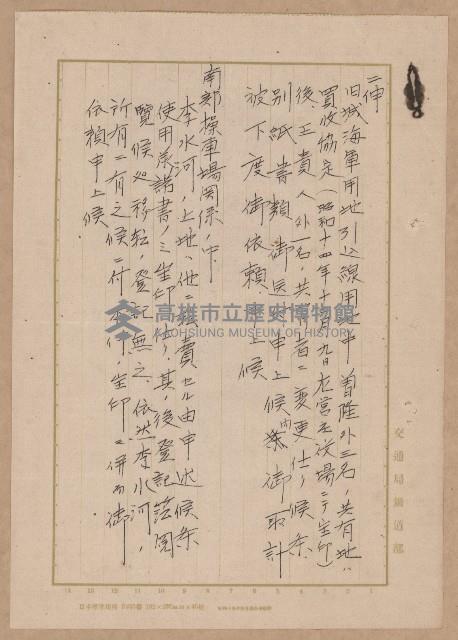 二伸
旧城海軍用地引込線用地中 首隆外三名ノ共有地ハ
買收協定(昭和十四年十月九日左営庄役場ニテ生印)
後王貴人外一名ノ共有者ニ変更仕リ候条
別紙書類御送申上候間御取計
被下度御依頼申上候
南部操車場関係ノ中
李水河ノ土地ハ他ニ賣セル由申述候条
使用承諾書ノミ生印候
其ノ後登記簿閲
覽候処移転ノ登記無之依然李水河ノ
所有ニ有之候ニ付
生印ニ併而御
依頼申上候
交通局鐵道部
高雄市立歷史博物館
KAOHSIUNG MUSEUM OF HISTORY
1 2 3 4 5 6 7 8 9 10 11 12 13